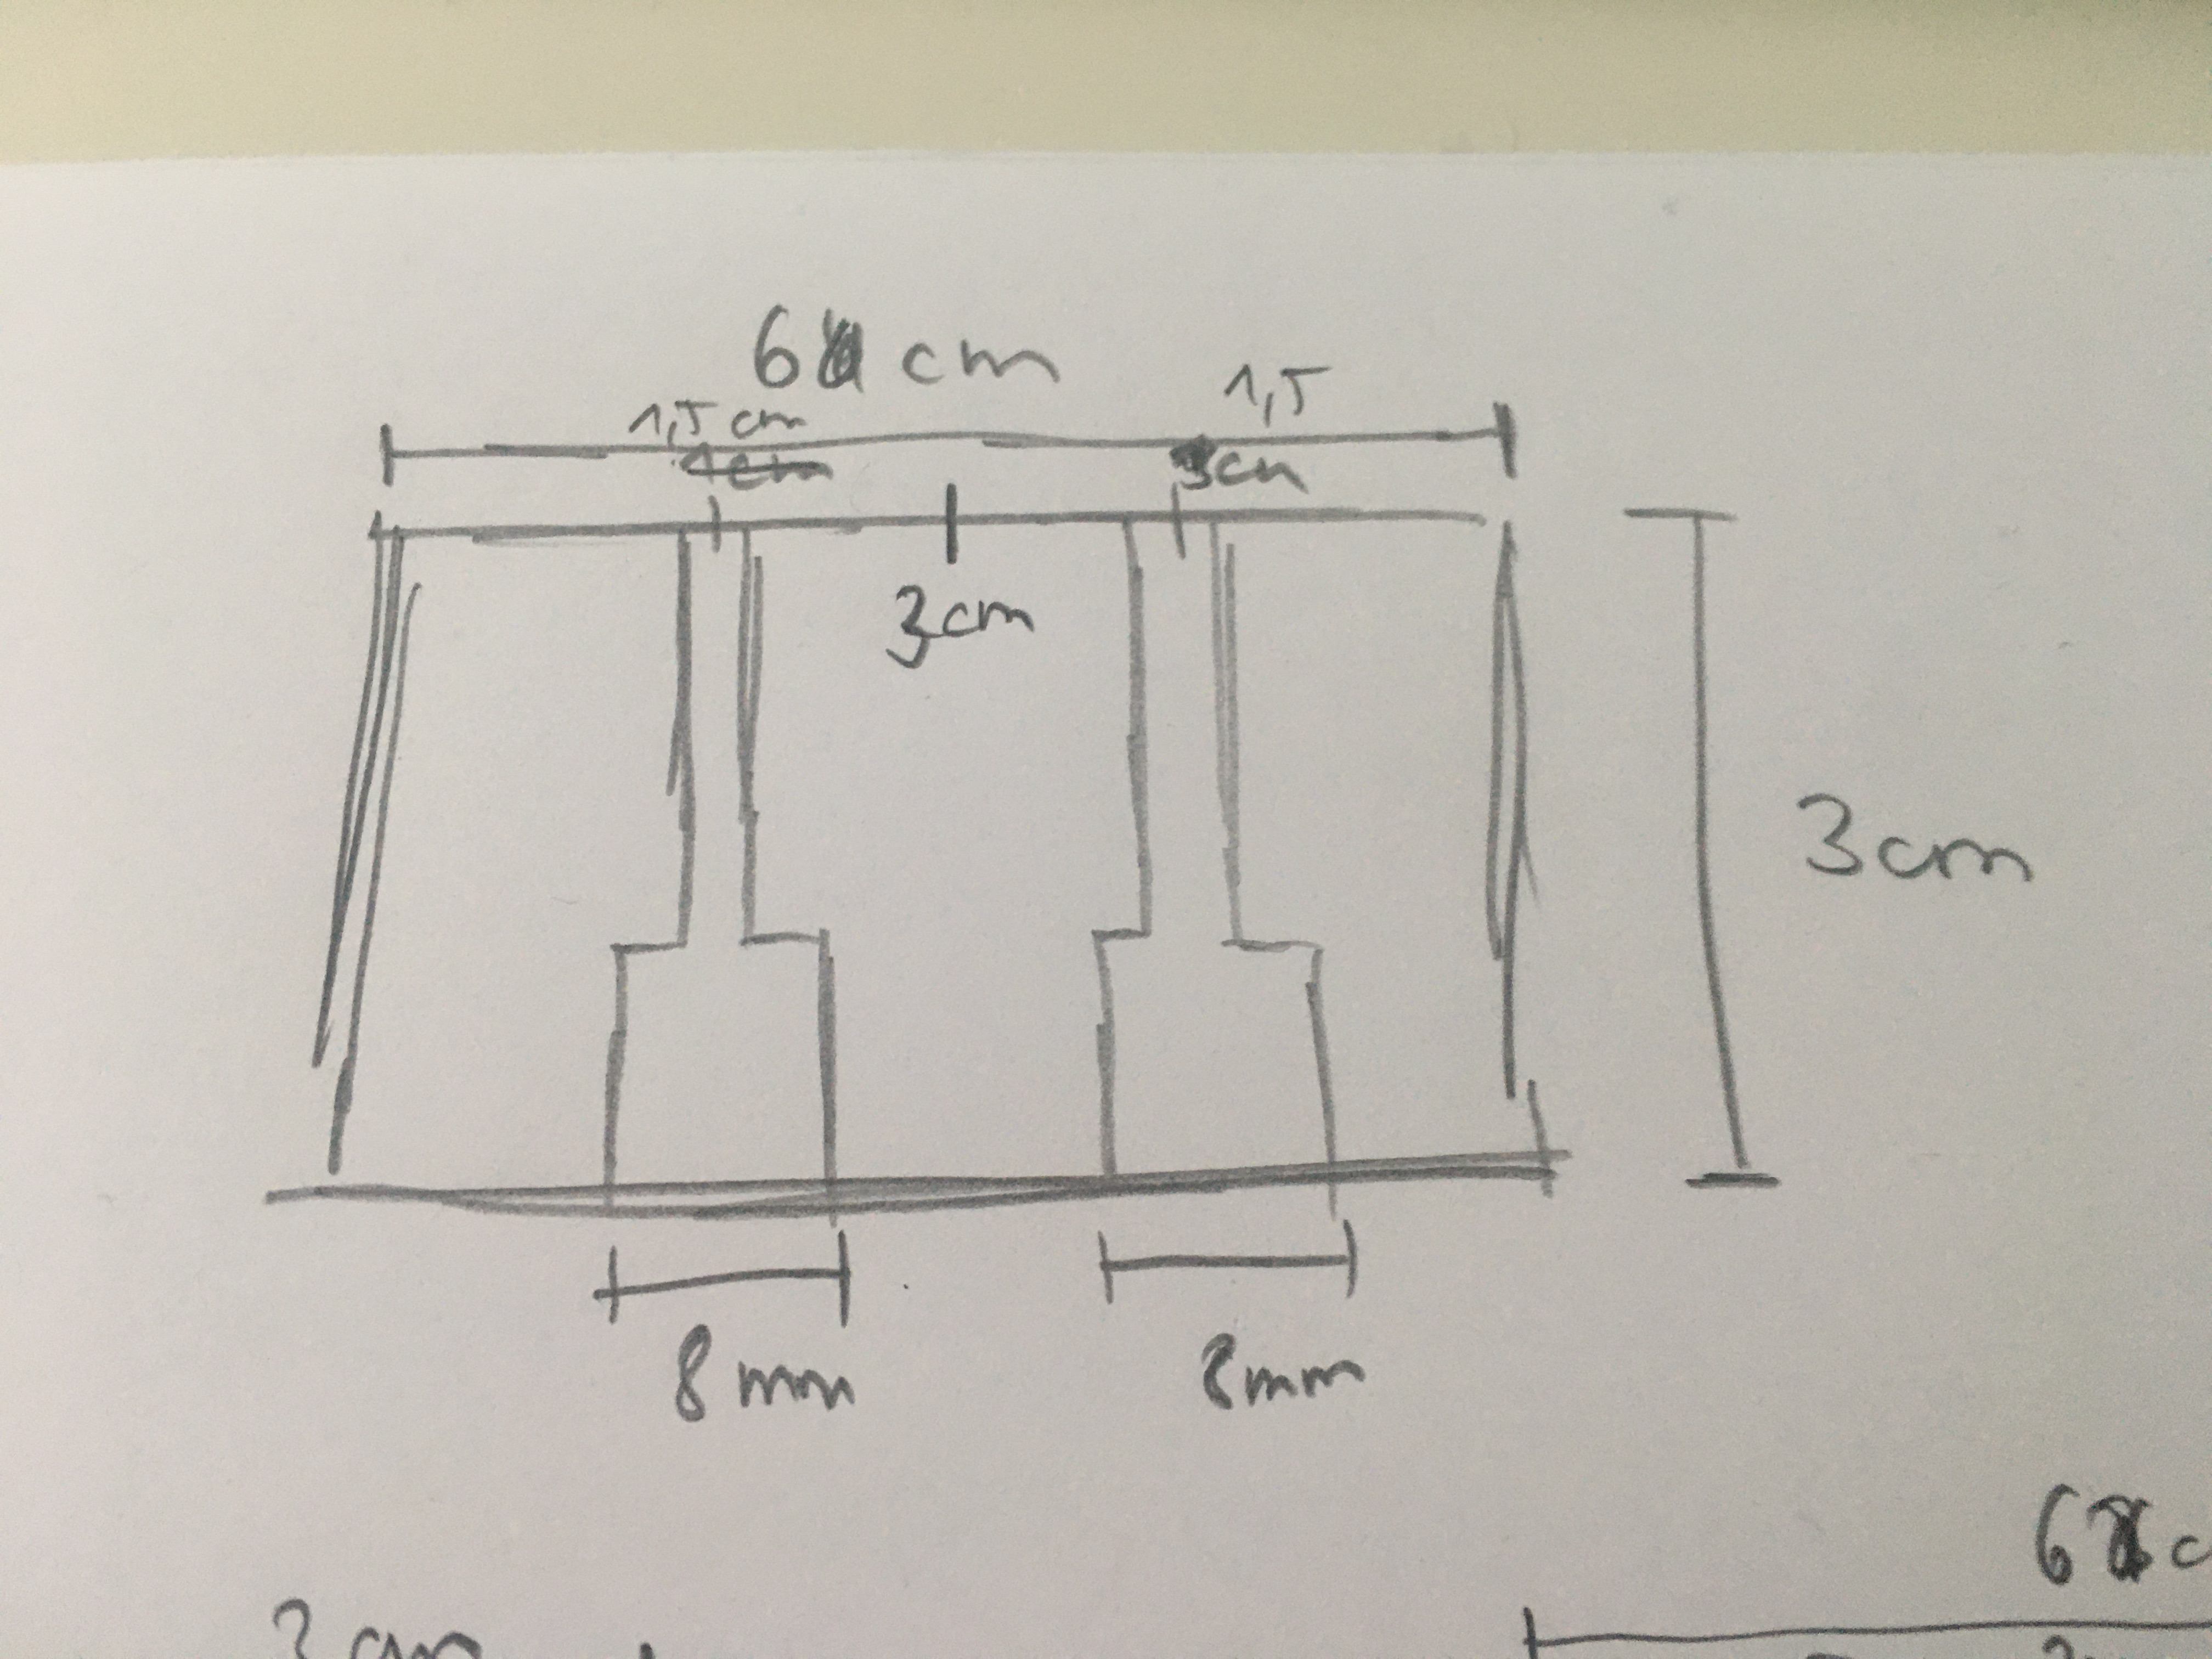 6 cm
1,5
1,5 cm
1cm
3cm
3cm
3cm
8 mm
8mm
6
3 cm